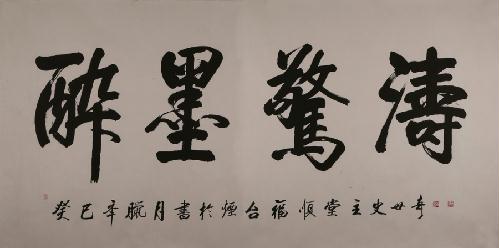 醉墨驚濤
癸巳年臘月書於煙台福堂主史世奇